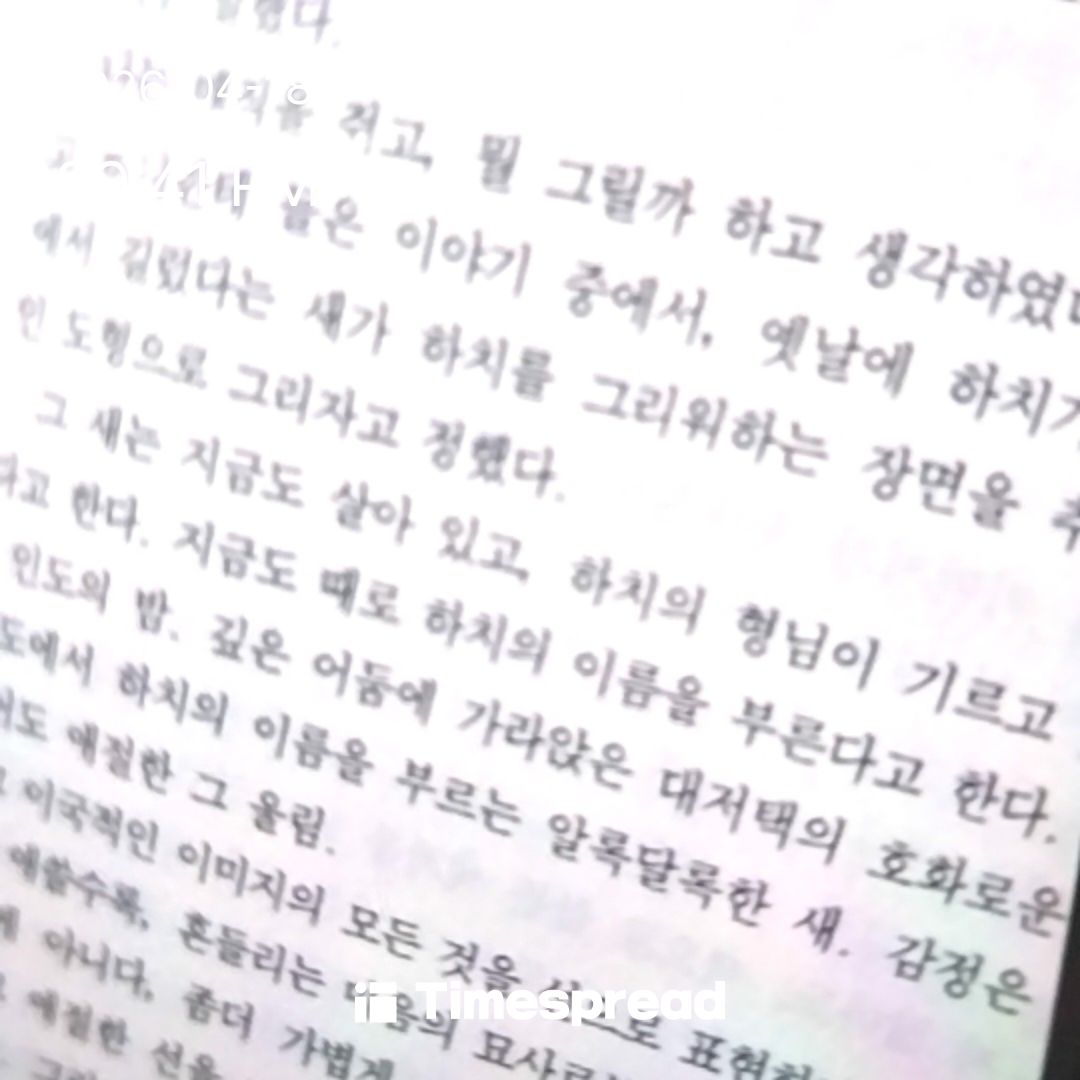 쥐고, 뭘 그릴까 하고 생각하였
들은 이야기 중에서, 옛날에 하치가
에서 길렀다는 새가 하치를 그리워하는 장면을
인 도형으로 그리자고 정했다.
그 새는 지금도 살아 있고, 하치의 형님이 기르고
다고 한다. 지금도 때로 하치의 이름을 부른다고 한다.
인도의 밤. 깊은 어둠에 가라앉은 대저택의 호화로운
도에서 하치의 이름을 부르는 알록달록한 새. 감정은
애절한 그 울림.
이국적인 이미지의 모든 것을 선으로 표현하
애쓸수록, 흔들리는 마음의 묘사로
아니다, 좀더 가볍게
애절한 선을
Timespread